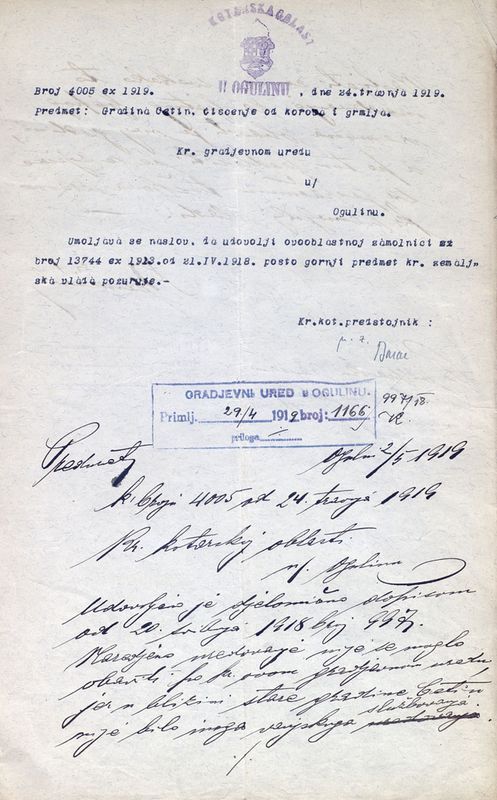 KOTARSKA OBLAST
U OGULINU
Broj 4005 ex 1919. , dne 24.travnja 1919.
Predmet: Gradina Cetin, čiscenje od korova i grmlja.
Kr. gradjevnom uredu
u/
Ogulinu.
Umoljava se naslov, da udovolji ovooblastnoj zamolnici
broj 13744 ex 1918.od 21.IV.1918. posto gornji predmet kr. zemalj„
ska vlada pozuruje.-
Kr.kot.predstojnik :
GRADJEVNI URED u OGULINU.
Primlj. 29/4 1919 broj: 1166
priloga
997/18.
Predmet
Ogulin 2/5 1919
k broju 4005 od 24. travnja 1919
Kr. kotarskoj oblasti
u/ Ogulinu
Udovoljeno je djelomično dopisom
od 20. svibnja 1918 broj 997.
Naredjeno uredovanje nije se moglo
obaviti po kr. ovom gradjevnom uredu,
jer u blizini stare gradine Cetin
nije bilo inoga vanjskoga službovanja